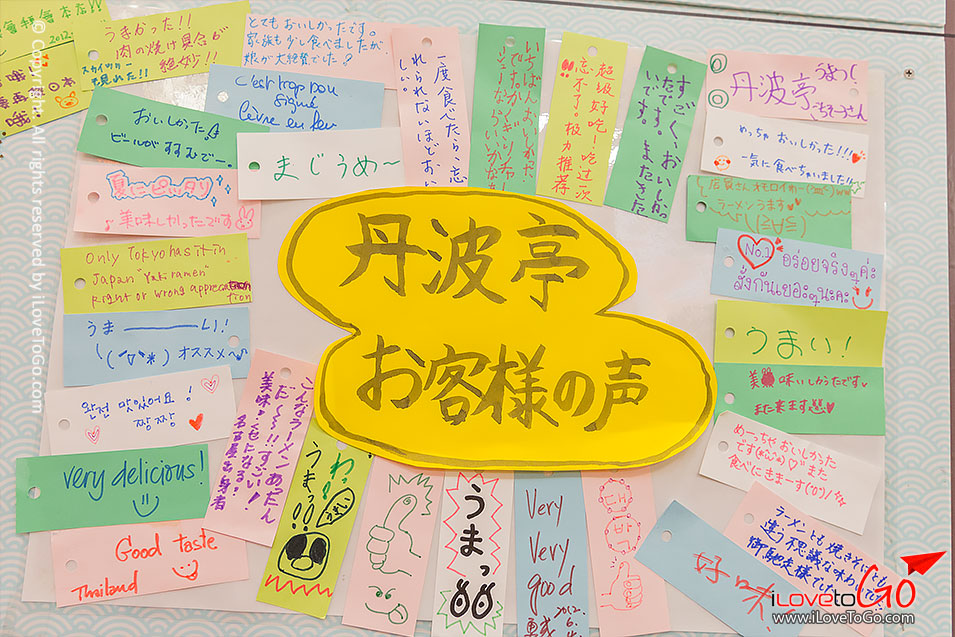 丹波亭
お客様の声
うまかった!!
肉の焼け具合が
絶妙!!
スカイツリー
も見れた!!
とてもおいしかったです。
家族も少し食べましたが
娘が大絶賛でした?
c'est trop bon
lèvre en feu
おいしかった
ビールがすすむでー。
まじうめ〜
夏にピッタリ
♪美味しかったです
Only Tokyo has it in
Japan "Yaki ramen"
Right or wrong
うま——い!
オススメ〜♪
완전 맛있어요!
짱짱
very delicious!
Good taste
Thailand
一度食べたら、忘
れられないほどおい
しい。
超级好吃!吃过一次
忘不了。极力推荐
すごく、おいしかっ
たです。またきた
いです。
うまっ!
丹波亭
ごちそうさん
めっちゃおいしかった!!!
一気に食べちゃいました!!
店員さんオモロイわー
ラーメンうます
No.1
อร่อยจริงๆค่ะ
สั่งกันเยอะๆนะคะ
うまい!
美味しかったです
また来ます
めーっちゃおいしかった
です
また
食べにきまーす
ラーメンとも焼きそばとも
違う不思議な味わい
御馳走様でした
好味
こんなラーメンあったん
だ〜〜!!すごい!
美味しくてくせになる!
名古屋出身者
わっ
うまっ!!
うまっ
Very
Very
good
2012.
6.
대
박
© Copyright All rights reserved by iLoveToGo.com
iLovetoGO
www.iLoveToGo.com